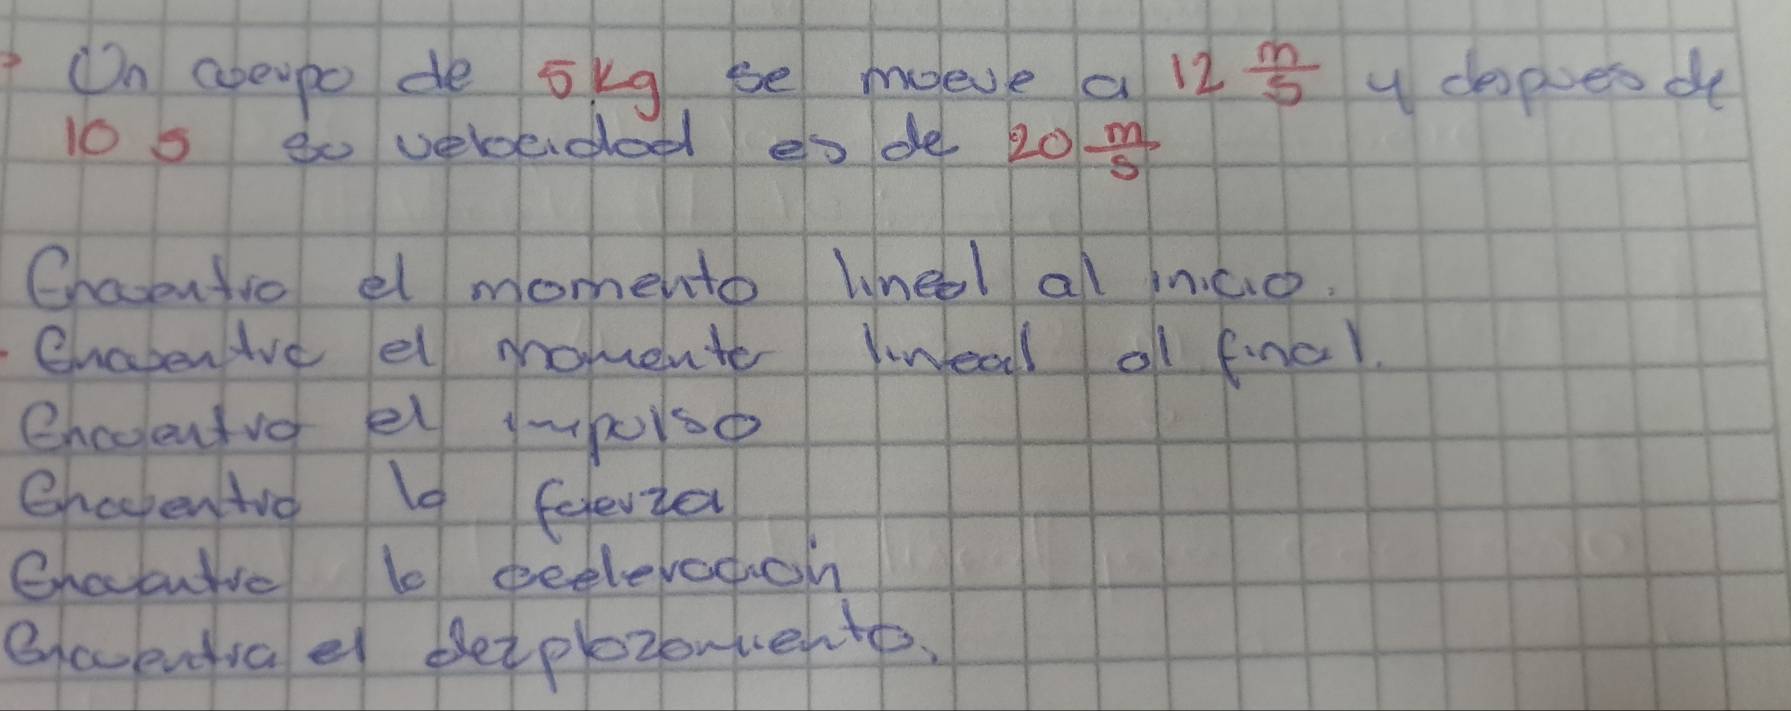 Un cuerpo de 5 kg se mueve a 12 m/s y despues de
10 s su velocidad es de 20 m/s
Encuentra el momento lineal al inicio.
Encuentra el momento lineal al final.
Encuentra el impulso
Encuentra la fuerza
Encuentra la aceleracion
Encuentra el dezplozomiento.